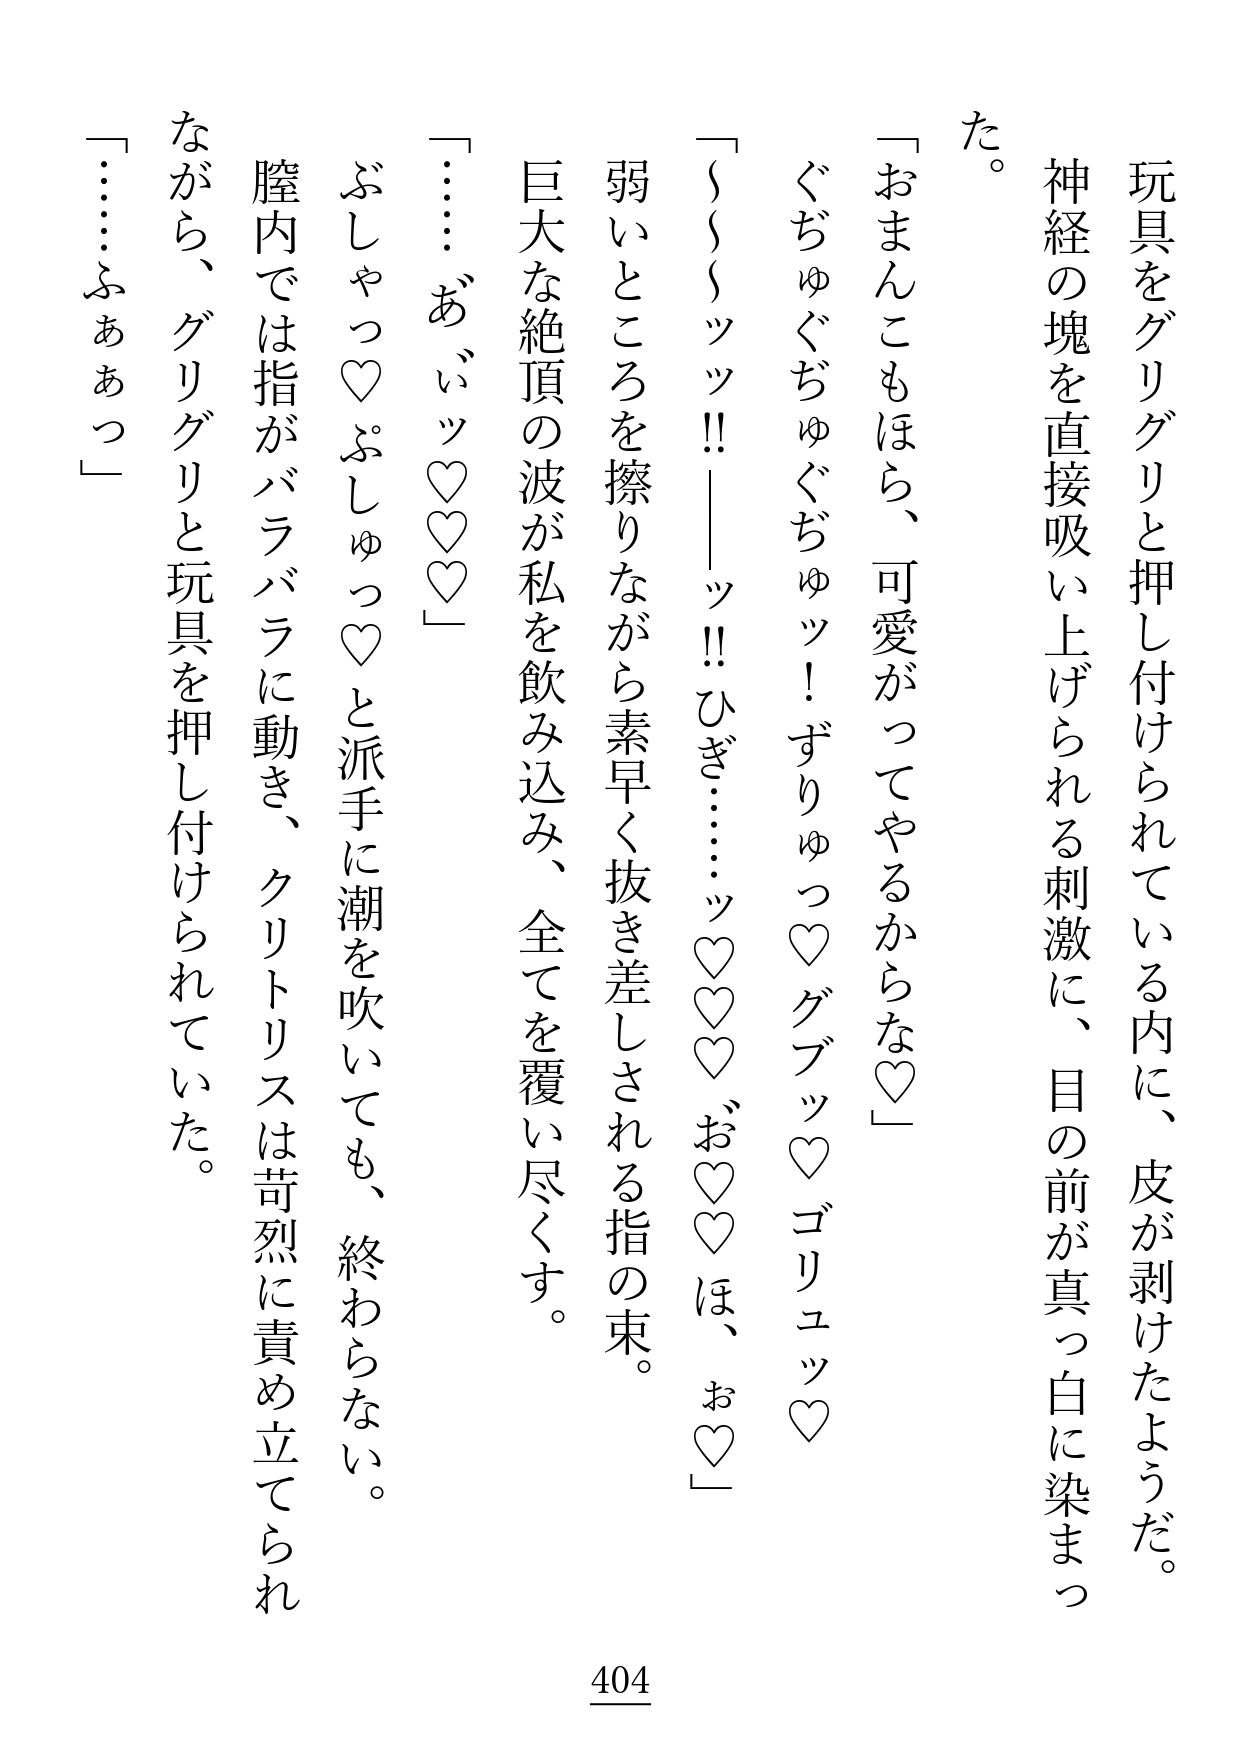 玩具をグリグリと押し付けられている内に、皮が剥けたようだ。
　神経の塊を直接吸い上げられる刺激に、目の前が真っ白に染まっ
た。
「おまんこもほら、可愛がってやるからな♡」
　ぐぢゅぐぢゅぐぢゅッ！ずりゅっ♡グブッ♡ゴリュッ♡
「～～～ッッ‼――ッ‼ひぎ……ッ♡♡♡お゛♡♡ほ、ぉ♡」
　弱いところを擦りながら素早く抜き差しされる指の束。
　巨大な絶頂の波が私を飲み込み、全てを覆い尽くす。
「……あ゛ぃ゛ッ♡♡♡」
　ぶしゃっ♡ぷしゅっ♡と派手に潮を吹いても、終わらない。
　膣内では指がバラバラに動き、クリトリスは苛烈に責め立てられ
ながら、グリグリと玩具を押し付けられていた。
「……ふぁぁっ」
404